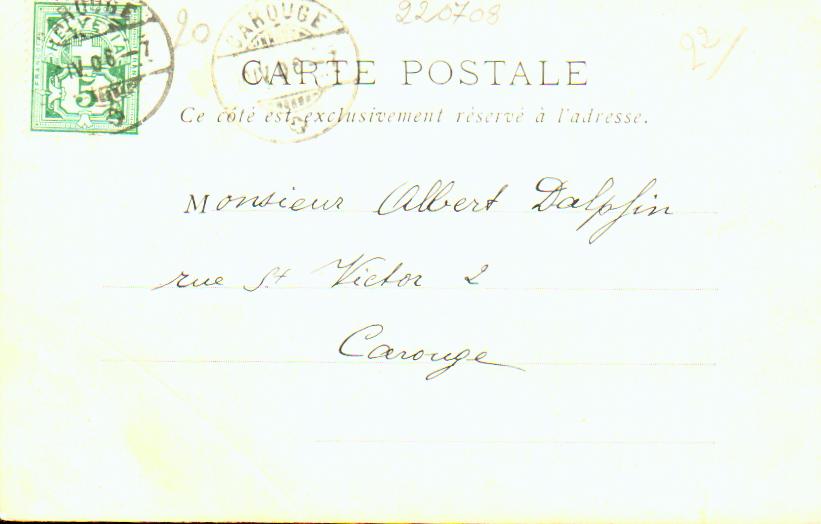 220708
20
22/
CAROUGE
HELVETIA
5
IV 06 - 7
CAROUGE
CARTE POSTALE
Ce côté est exclusivement réservé à l'adresse.
Monsieur Albert Dalphin
rue St Victor 2
Carouge